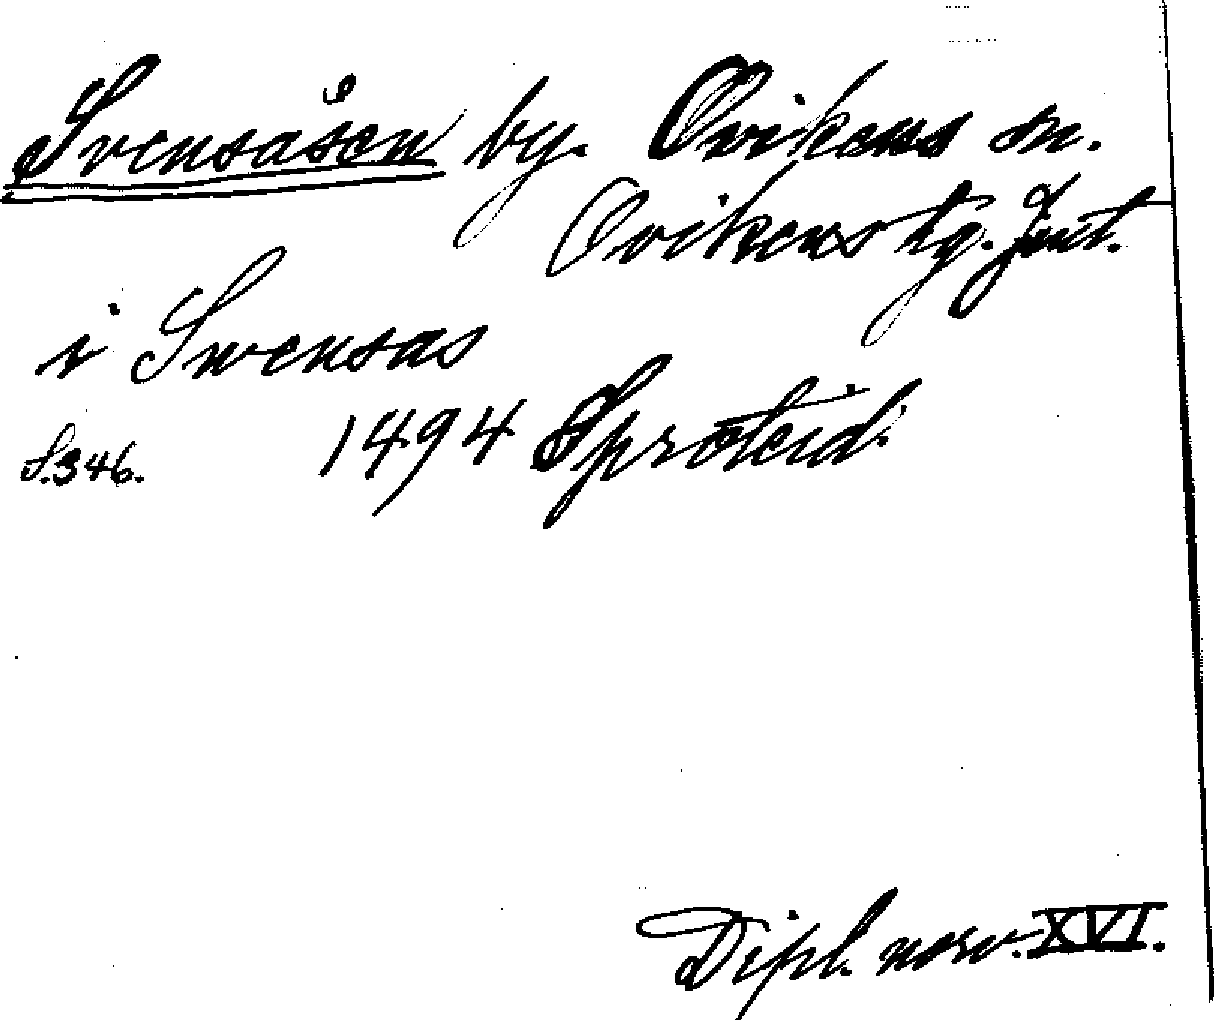 Svensåsen by. Ovikens sn.
Ovikens tg. Jmt.
i Swensas
S. 346. 1494 Sproteid.
Dipl. norv. XVI.